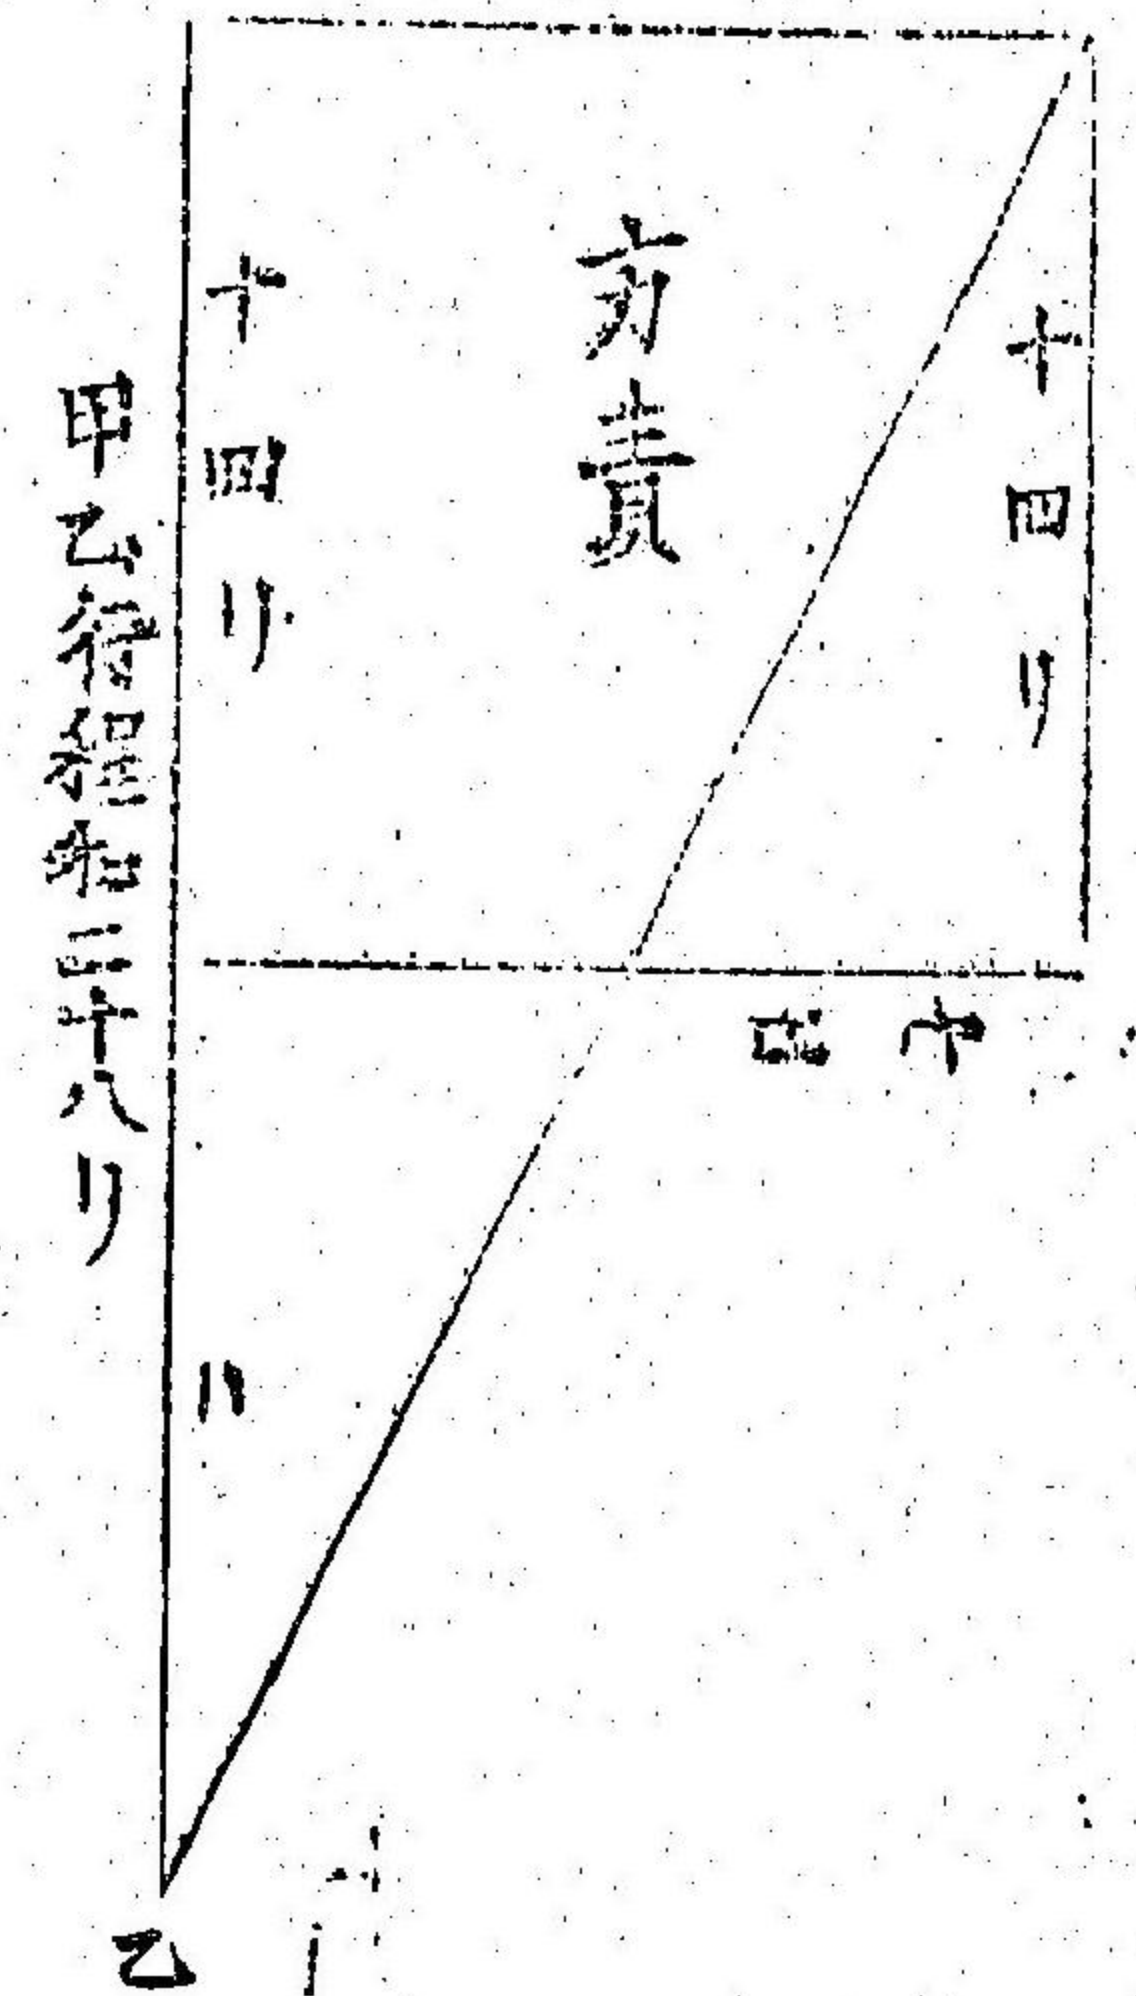 十四リ
方責
十四リ
甲乙行程和二十八リ
乙